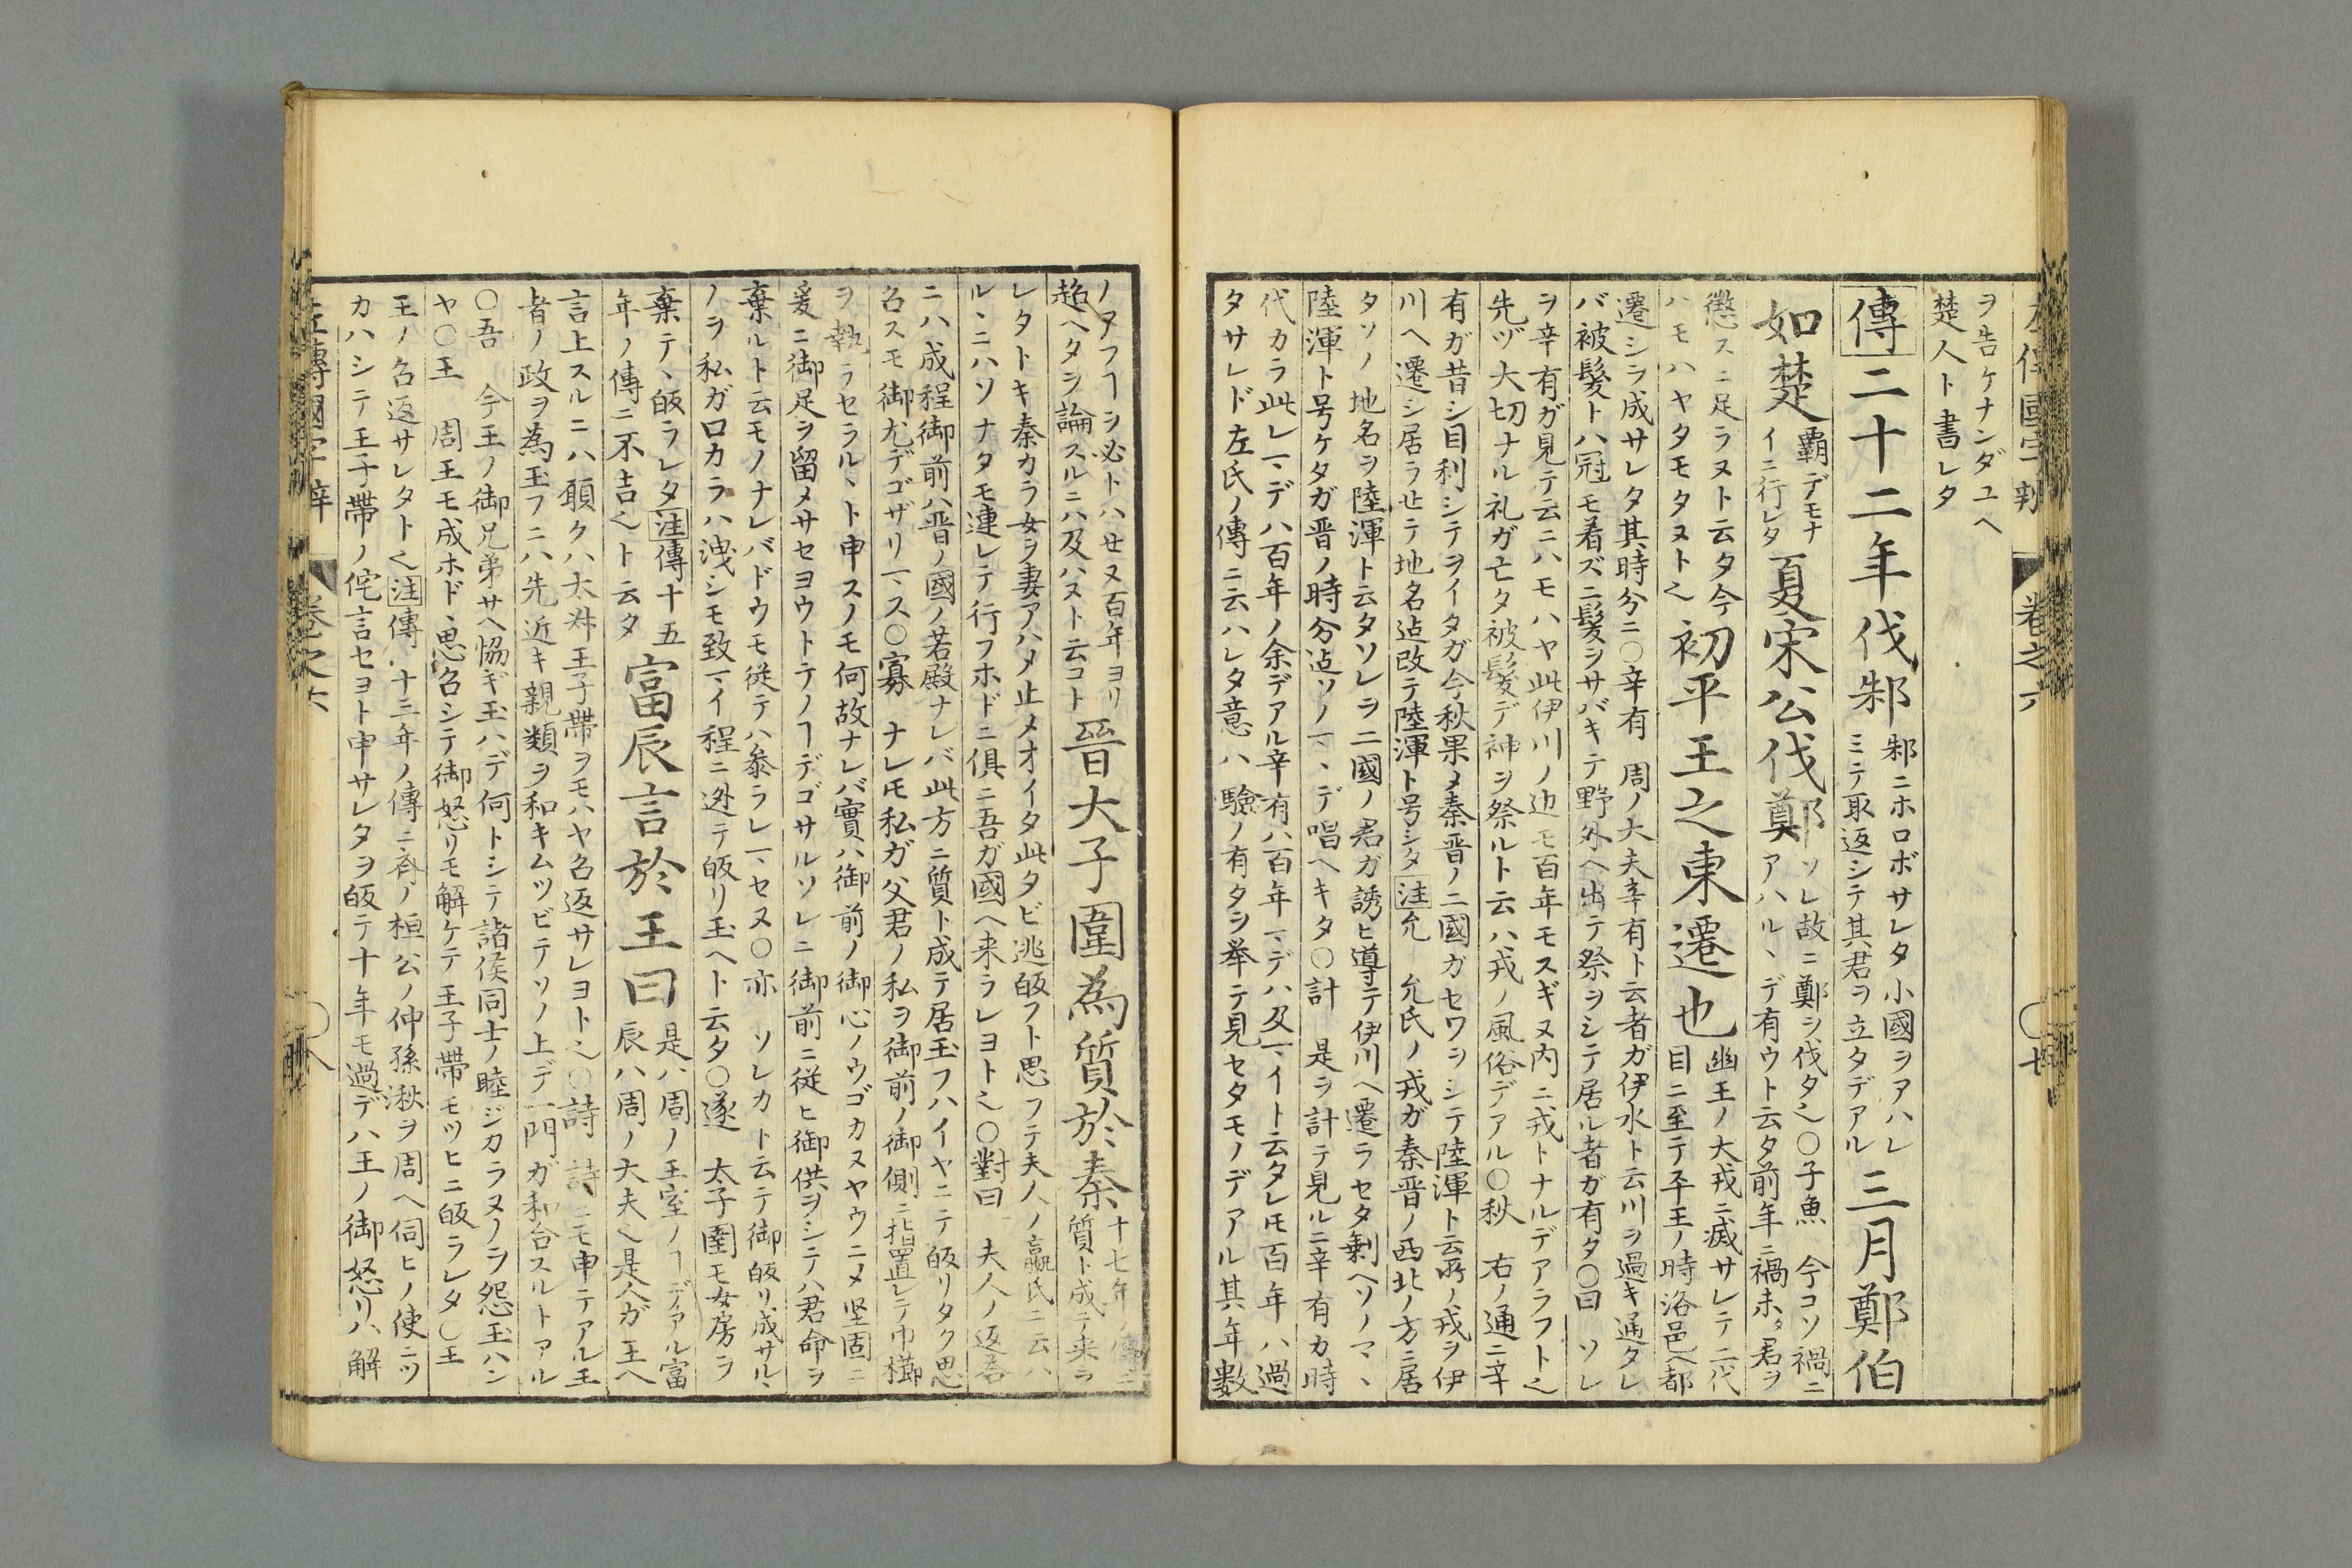 左傳國字辨
卷之六
〇七
ヲ告ケナンダユヘ
楚人ト書レタ
傳二十二年伐邾
邾ニホロボサレタ小國ヲアハレ
ミテ取返シテ其君ヲ立タデアル
三月鄭伯
如楚
覇デモナ
イニ行レタ
夏宋公伐鄭
ソレ故ニ鄭ヲ伐タ𪜀〇子魚 今コソ禍ニ
アハルヽデ有ウト云タ前年ニ禍未タ君ヲ
懲スニ足ラヌト云タ今
ハモハヤタモタヌト𪜀
初平王之東遷也
幽王ノ犬戎ニ滅サレテ二代
目ニ至テ平王ノ時洛邑ヘ都
遷シヲ成サレタ其時分ニ〇辛有 周ノ大夫辛有ト云者ガ伊水ト云川ヲ過キ通タレ
バ被髮トハ冠モ着ズニ髮ヲサバキテ野外ヘ出テ祭ヲシテ居ル者ガ有タ〇曰 ソレ
ヲ辛有ガ見テ云ニハモハヤ此伊川ノ辺モ百年モスギヌ内ニ戎トナルデアラフト𪜀
先ヅ大切ナル礼ガ亡タ被髮デ神ヲ祭ルト云ハ戎ノ風俗デアル〇秋 右ノ通ニ辛
有ガ昔シ目利シテヲイタガ今秋果メ秦晋ノ二國ガセワヲシテ陸渾ト云所ノ戎ヲ伊
川ヘ遷シ居ラセテ地名迠改テ陸渾ト号シタ注允 允氏ノ戎ガ秦晋ノ西北ノ方ニ居
タソノ地名ヲ陸渾ト云タソレヲ二國ノ君ガ誘ヒ導テ伊川ヘ遷ラセタ剰ヘソノマヽ
陸渾ト号ケタガ晋ノ時分迠ソノマヽデ唱ヘキタ〇計 是ヲ計テ見ルニ辛有カ時
代カラ此レマデハ百年ノ余デアル辛有ハ百年マデハ及マイト云タレ𪜈百年ハ過
タサレド左氏ノ傳ニ云ハレタ意ハ驗ノ有タヲ举テ見セタモノデアル其年數
ノヌフヿヲ必トハセヌ百年ヨリ
趂ヘタヲ論スルニハ及ハヌト云コト
晉大子圉為質於秦
十七年ノ傳ニ
質ト成テ来ラ
レタトキ秦カラ女ヲ妻アハメ止メオイタ此タビ逃皈フト思フテ夫人ノ嬴氏ニ云ハ
ルヽニハソナタモ連レテ行フホドニ俱ニ吾ガ國ヘ来ラレヨト𪜀〇對曰 夫人ノ返答
ニハ成程御前ハ晋ノ國ノ若殿ナレバ此方ニ質ト成テ居玉フハイヤニテ皈リタク思
召スモ御尤デゴザリマス〇寡 ナレ𪜈私ガ父君ノ私ヲ御前ノ御側ニ指置レテ巾櫛
ヲ執ラセラルヽト申スノモ何故ナレバ實ハ御前ノ御心ノウゴカヌヤウニメ坚固ニ
爰ニ御足ヲ留メサセヨウトテノヿデゴサルソレニ御前ニ従ヒ御供ヲシテハ君命ヲ
棄ルト云モノナレバドウモ従テハ参ラレマセヌ〇亦 ソレカト云テ御皈リ成サルヽ
ノヲ私ガ口カラハ洩シモ致マイ程ニ迯テ皈リ玉ヘト云タ〇遂 太子圉モ女房ヲ
棄テヽ皈ラレタ注傳十五
年ノ傳ニ不吉𪜀ト云タ
富辰言於王曰
是ハ周ノ王室ノヿデアル富
辰ハ周ノ大夫𪜀是人ガ王ヘ
言上スルニハ願クハ太叔王子帶ヲモハヤ召返サレヨト𪜀〇詩 詩ニモ申テアル王
者ノ政ヲ為玉フニハ先近キ親類ヲ和キムツビテソノ上デ一門ガ和合スルトアル
〇吾 今王ノ御兄弟サヘ恊ギ玉ハデ何トシテ諸侯同士ノ睦ジカラヌノヲ怨玉ハン
ヤ〇王 周王モ成ホドヽ思召シテ御怒リモ解ケテ王子帶モツヒニ皈ラレタ〇王
王ノ召返サレタト𪜀注傳 十三年ノ傳ニ齊ノ桓公ノ仲孫湫ヲ周ヘ伺ヒノ使ニツ
カハシテ王子帶ノ侘言セヨト申サレタヲ皈テ十年モ過デハ王ノ御怒リハ解
左傳國字辨
卷之六
〇八